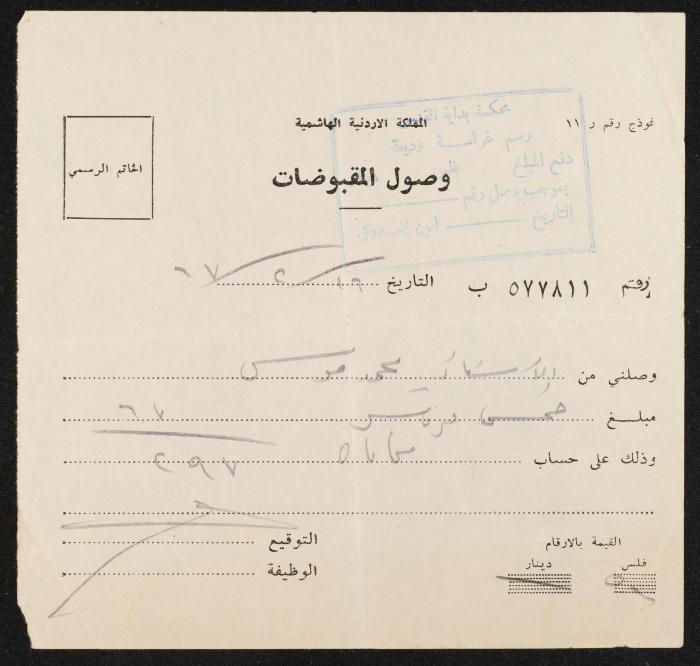 المملكة الاردنية الهاشمية
نموذج رقم ر ١١
الخاتم الرسمي
وصول المقبوضات
محكمة بداية القدس
رسم غرامة وديعة
دفع المبلغ فلس
بموجب وصل رقم
التاريخ امين الصندوق
رقم ٥٧٧٨١١ ب التاريخ ١٦/٢/٦٧
وصلني من الاستاذ محمد موسى
مبلغ ٦٧
وذلك على حساب ٢٩٧
القيمة بالارقام
فلس دينار
التوقيع
الوظيفة